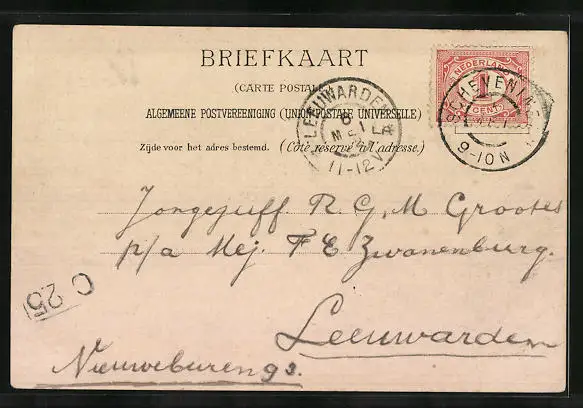 BRIEFKAART
(CARTE POSTALE)
ALGEMEENE POSTVEREENIGING (UNION POSTALE UNIVERSELLE)
Zijde voor het adres bestemd. (Côté réservé à l'adresse.)
NEDERLAND
1
CENT
LEEUWARDEN
6
MEI
11-12V
SCHEVENINGEN
9-10N
Jongejuff. R. G. M Grootes
p/a Mej. F E Zwanenburg.
Leeuwarden
Nieuweburen 93.
C 25